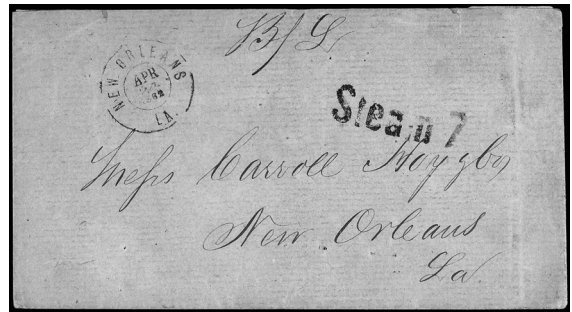 B/L
NEW ORLEANS
APR
LA.
Steam 7
Mess Carroll Hoy & Co
New Orleans
La